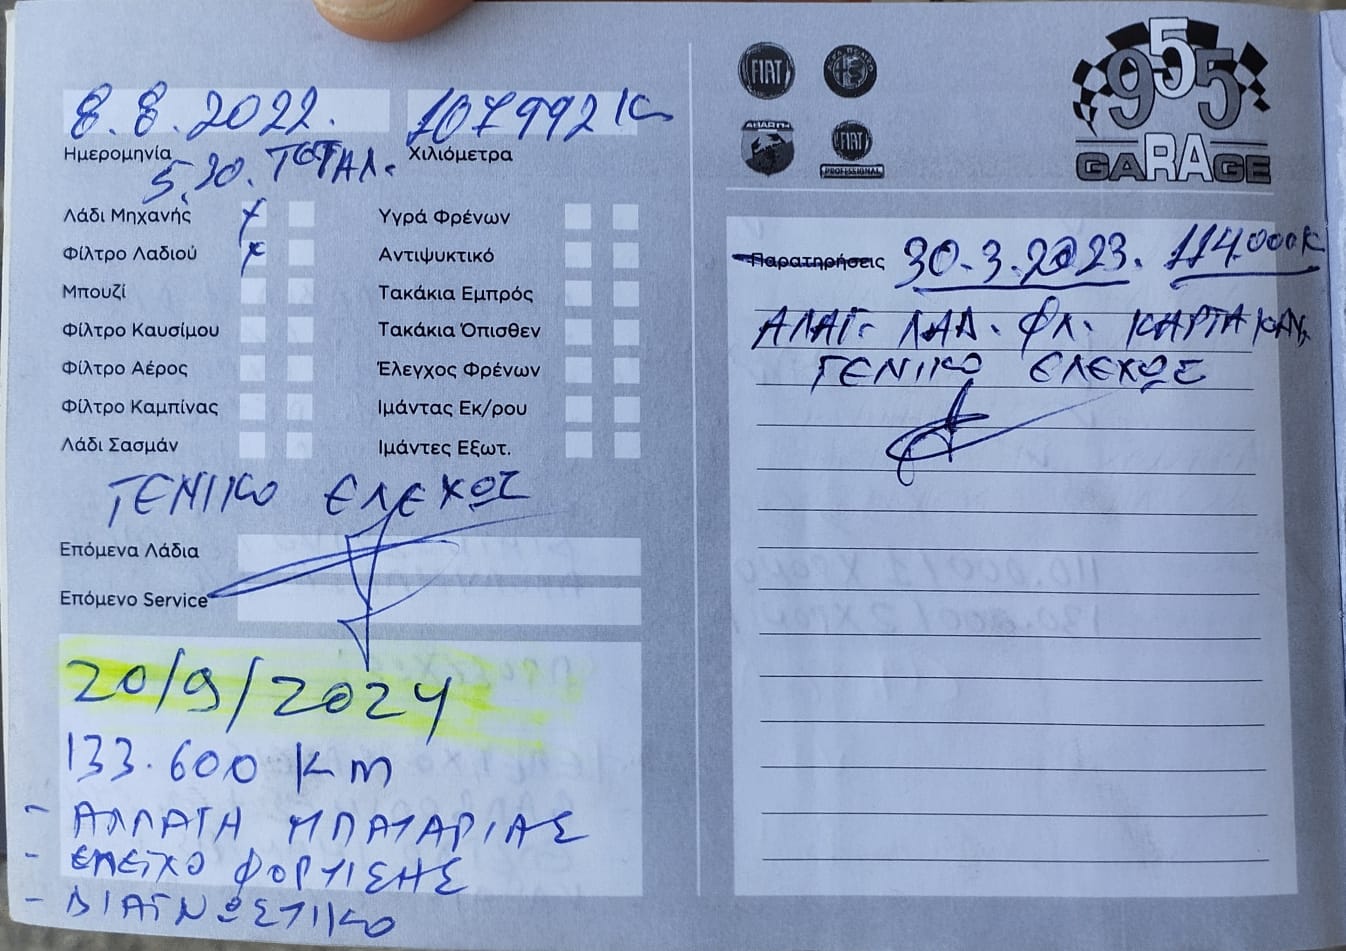 8.8.2022. 107992 K
Ημερομηνία Χιλιόμετρα
5.30. TOTAL.
Λάδι Μηχανής x Υγρά Φρένων
Φίλτρο Λαδιού x Αντιψυκτικό
Μπουζί Τακάκια Εμπρός
Φίλτρο Καυσίμου Τακάκια Όπισθεν
Φίλτρο Αέρος Έλεγχος Φρένων
Φίλτρο Καμπίνας Ιμάντας Εκ/ρου
Λάδι Σασμάν Ιμάντες Εξωτ.
ΓΕΝΙΚΟ ΕΛΕΧΟΣ
Επόμενα Λάδια
Επόμενο Service
20/9/2024
133.600 km
- ΑΛΛΑΓΗ ΜΠΑΤΑΡΙΑΣ
- ΕΛΕΓΧΟ ΦΟΡΤΙΣΗΣ
- ΔΙΑΓΝΩΣΤΙΚΟ
FIAT
ALFA ROMEO
ABARTH
FIAT
PROFESSIONAL
955
GARAGE
Παρατηρήσεις 30.3.2023. 114.000K
ΑΛΑΓ. ΛΑΔ. ΦΛ. ΚΑΡΤΑ ΚΑΥ.
ΓΕΝΙΚΟ ΕΛΕΧΩΣ